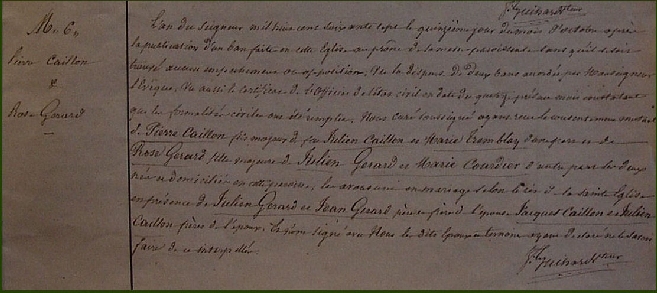 J. Guihard
M. C.
Pierre Caillon
&
Rose Gerard
L'an du Seigneur mil huit cent soixante sept le quinzième jour du mois d'octobre après
la publication d'un ban faite en cette Eglise au prône de la messe paroissiale sans qu'il se soit
trouvé aucun empêchement ou opposition, Vu la dispense de deux bans accordée par Monseigneur
l'Evêque, Vu aussi le certificat de l'Officier de l'état civil en date du constatant
que les formalités civiles ont été remplies, Nous curé soussigné avons reçu le consentement mutuel
de Pierre Caillon fils majeur de feu Julien Caillon et Marie Tremblay d'une part et de
Rose Gerard fille majeure de Julien Gerard et Marie Courdier d'autre part les deux
nés et domiciliés en cette paroisse, les avons unis en mariage selon le rit de la Sainte Eglise
en présence de Julien Gerard et Jean Gerard père et frère de l'épouse Jacques Caillon et Julien
Caillon frères de l'époux, le signé avec Nous les dits époux et témoins ayant déclaré ne le savoir
faire de ce interpellés
J. Guihard